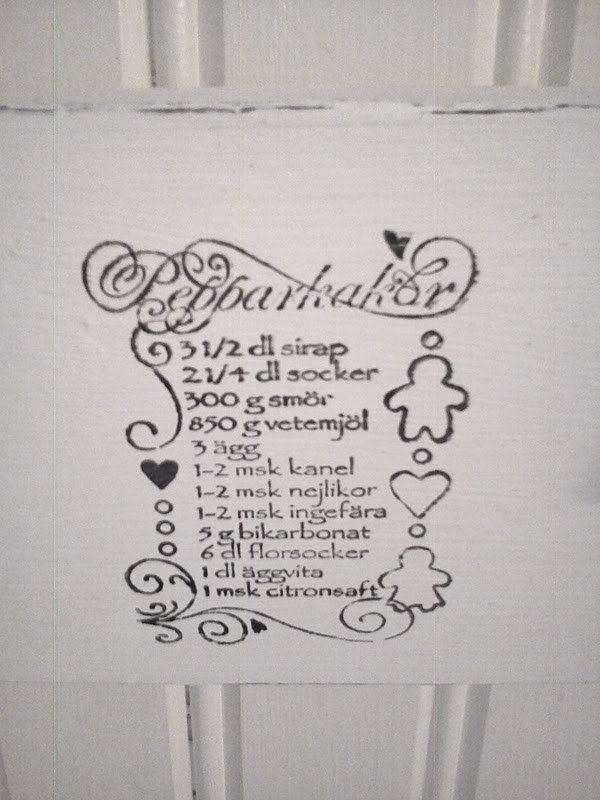 Pepparkakor
3 1/2 dl sirap
2 1/4 dl socker
300 g smör
850 g vetemjöl
3 ägg
1-2 msk kanel
1-2 msk nejlikor
1-2 msk ingefära
5 g bikarbonat
6 dl florsocker
1 dl äggvita
1 msk citronsaft